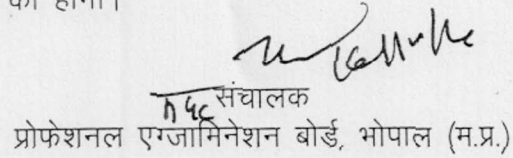 का होगा।
संचालक
प्रोफेशनल एग्जामिनेशन बोर्ड, भोपाल (म.प्र.)